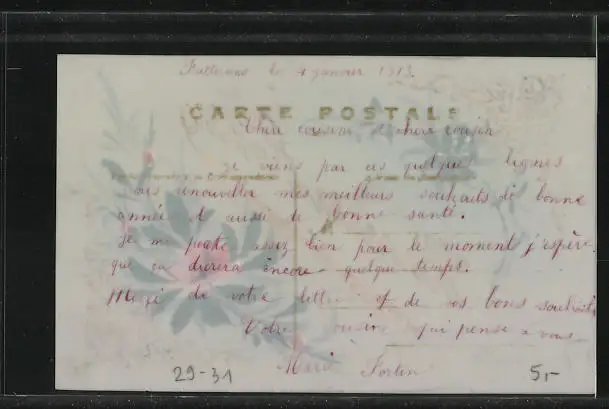 le 4 janvier 1913.
CARTE POSTALE
Chère cousine et chère cousin
je viens par ces quelques lignes
vous renouveller mes meilleurs souhaits de bonne
année et aussi de bonne santé.
Je me porte assez bien pour le moment j'espère
que ça durera encore quelque temps.
Merçi de votre lettre et de vos bons souhaits
Votre qui pense a vous
Marie Fortin
29-31
5,-